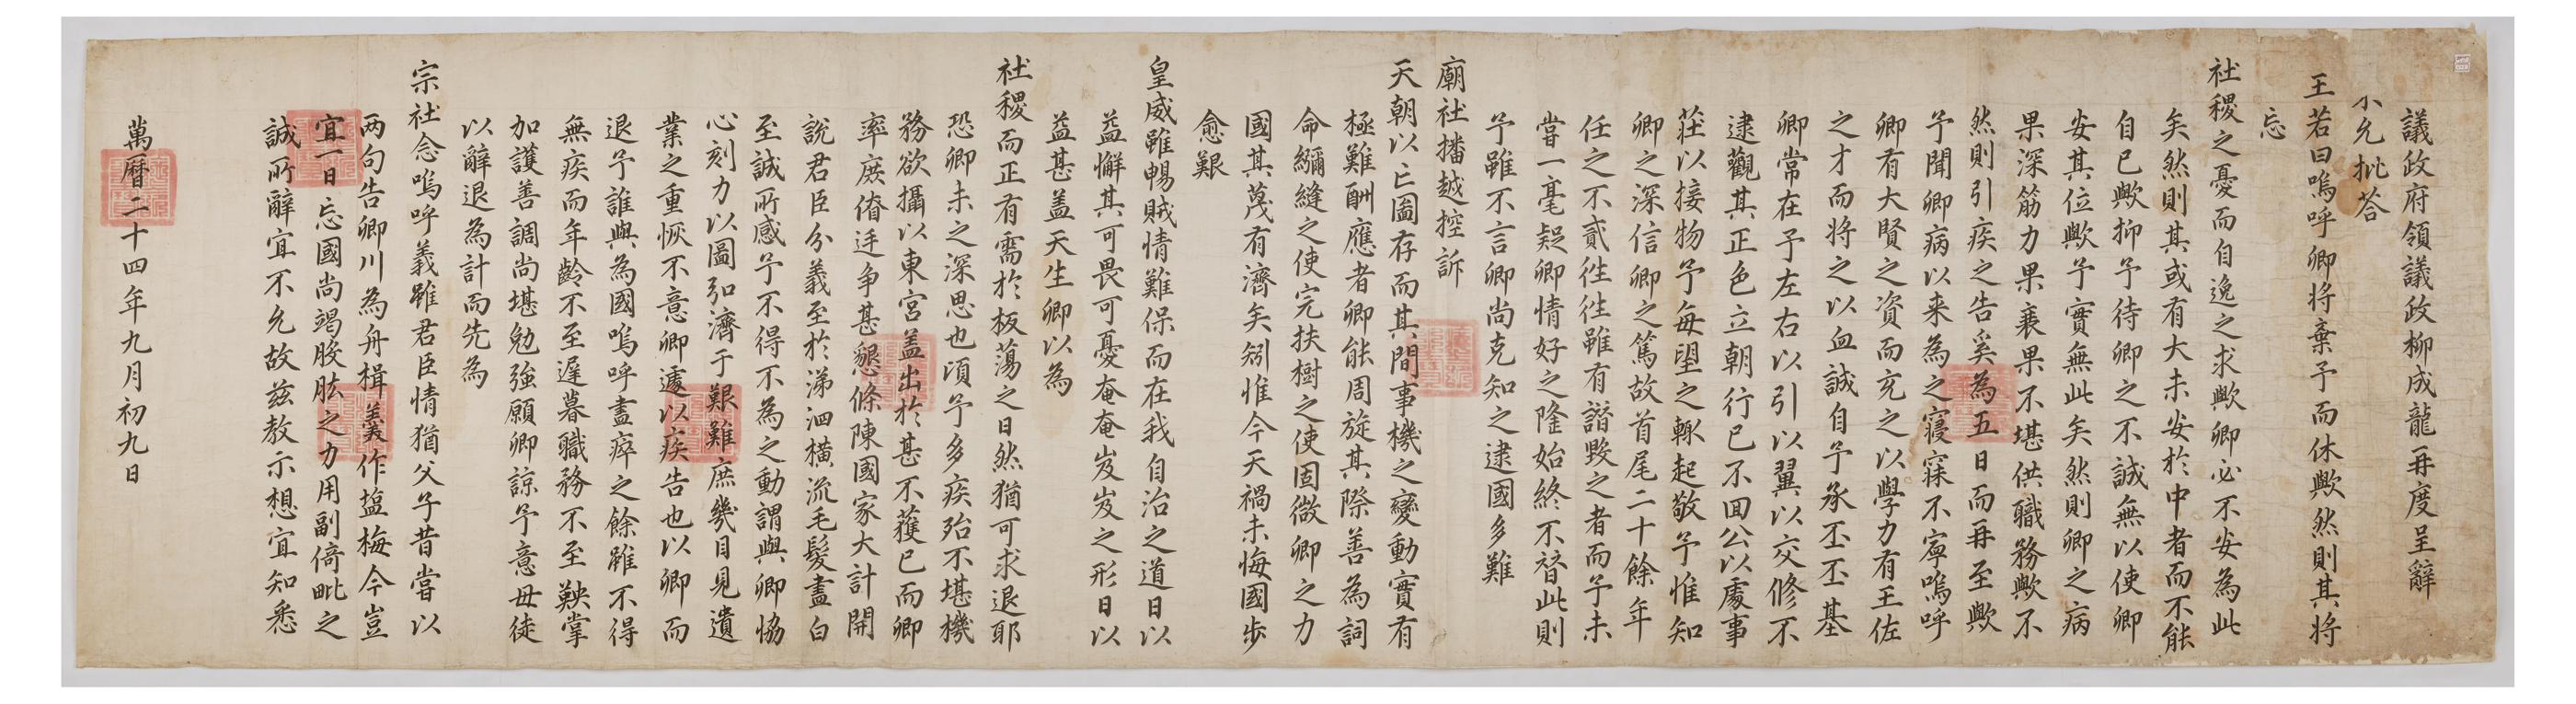 議政府領議政柳成龍再度呈辭
不允批答
王若曰嗚呼卿將棄予而休歟然則其將
忘
社稷之憂而自逸之求歟卿必不安為此
矣然則其或有大未安於中者而不能
自已歟抑予待卿之不誠無以使卿
安其位歟予實無此矣然則卿之病
果深筋力果衰果不堪供職務歟不
然則引疾之告奚為五日而再至歟
予聞卿病以来為之寢寐不寧嗚呼
卿有大賢之資而充之以學力有王佐
之才而將之以血誠自予承丕丕基
卿常在予左右以引以翼以交修不
逮觀其正色立朝行已不回公以處事
莊以接物予每望之輒起敬予惟知
卿之深信卿之篤故首尾二十餘年
任之不貳徃徃雖有譖毀之者而予未
嘗一毫疑卿情好之隆始終不替此則
予雖不言卿尚克知之逮國多難
廟社播越控訴
天朝以亡圖存而其間事機之變動實有
極難酬應者卿能周旋其際善為詞
命繃縫之使完扶樹之使固微卿之力
國其蔑有濟矣矧惟今天禍未悔國步
愈艱
皇威雖暢賊情難保而在我自治之道日以
益懈其可畏可憂奄奄岌岌之形日以
益甚盖天生卿以為
社稷而正有需於板蕩之日然猶可求退耶
恐卿未之深思也頃予多疾殆不堪機
務欲攝以東宮盖出於甚不獲已而卿
率庶僚迋争甚懇條陳國家大計開
說君臣分義至於涕泗橫流毛髮盡白
至誠所感予不得不為之動謂與卿恊
心刻力以圖弘濟于艱難庶幾目見遺
業之重恢不意卿遽以疾告也以卿而
退予誰與為國嗚呼盡瘁之餘雖不得
無疾而年齡不至遅暮職務不至鞅掌
加護善調尚堪勉強願卿諒予意毋徒
以辭退為計而先為
宗社念嗚呼義雖君臣情猶父子昔嘗以
两句告卿川為舟楫羹作塩梅今豈
宜一日忘國尚竭股肱之力用副倚毗之
誠所辭宜不允故兹教示想宜知悉
萬曆二十四年九月初九日